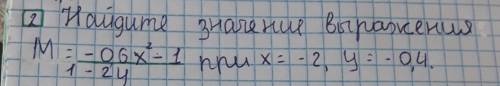 2 Найдите значение выражения
M = -06x² - 1 при x = -2, y = -0,4.
1 - 2y